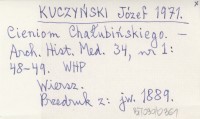 KUCZYŃSKI Józef 1971.
Cieniom Chałubińskiego. –
Arch. Hist. Med. 34, nr 1:
48-49. WHP
Wiersz.
Przedruk z: jw. 1889.